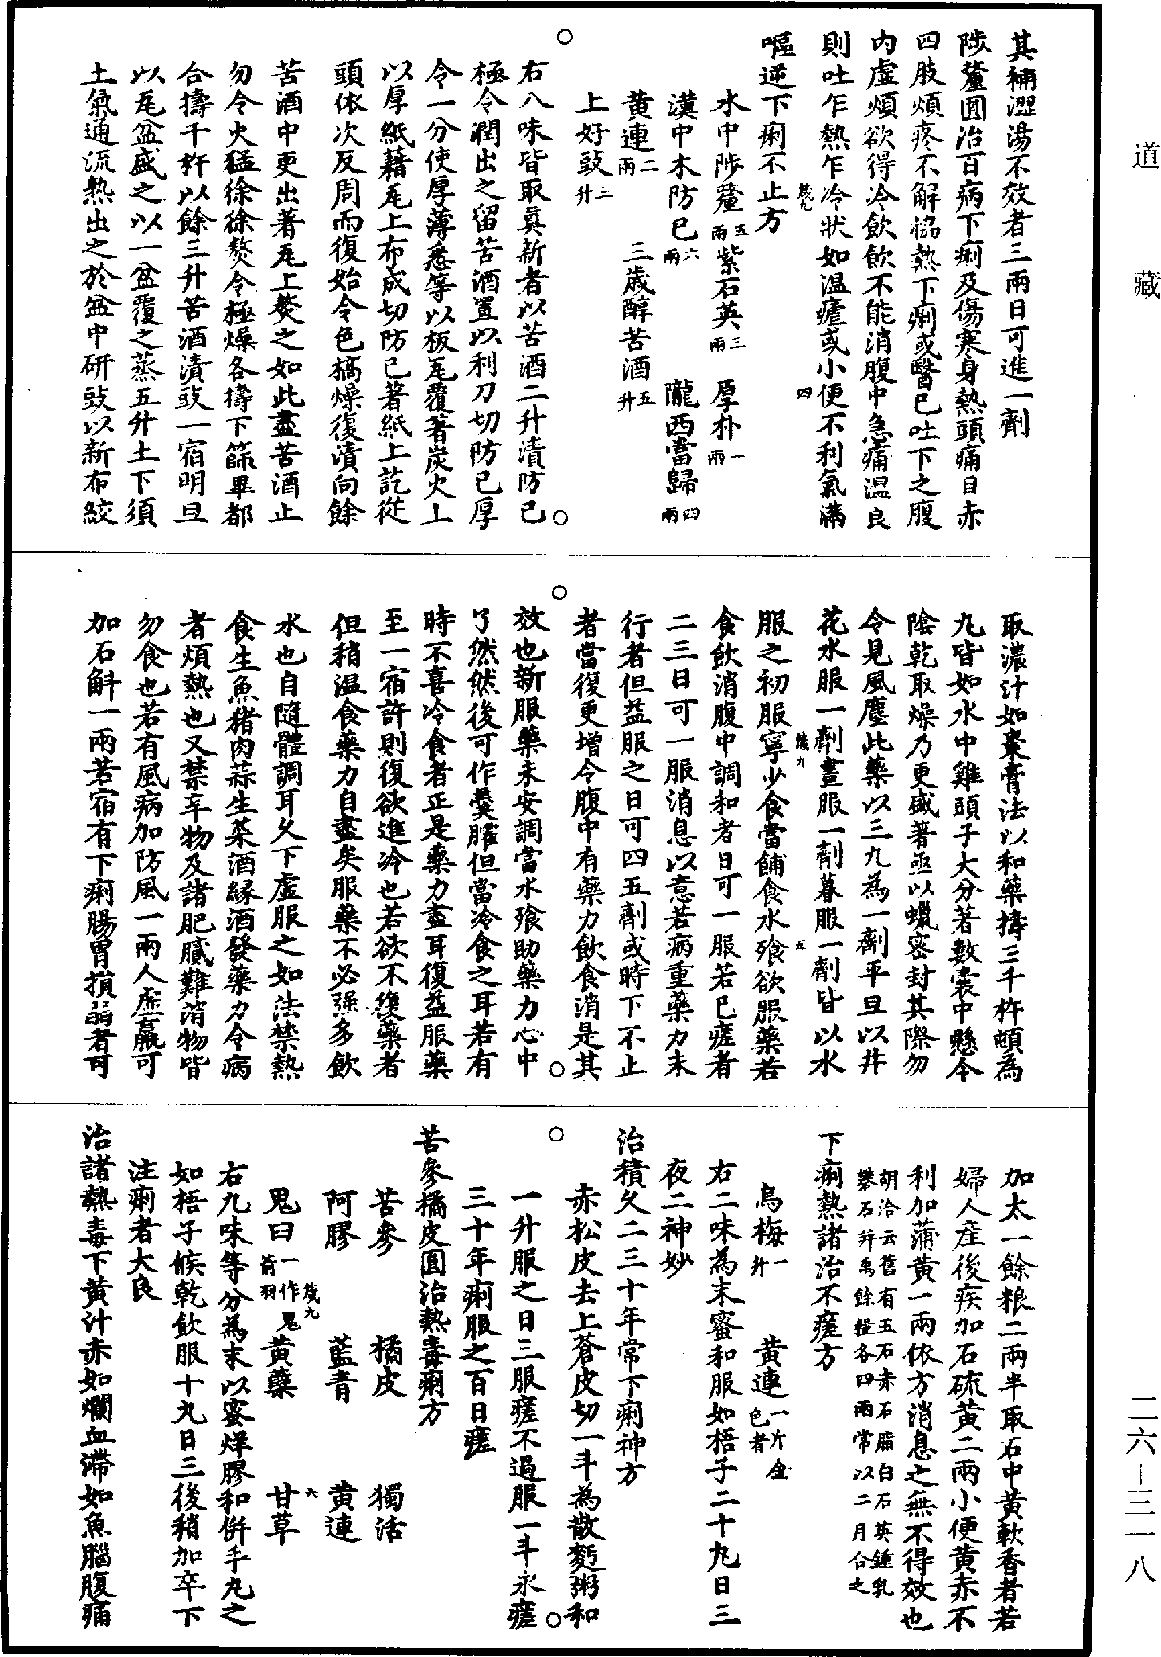 道藏
其補澀湯不效者三兩日可進一劑
陟釐圓治百病下痢及傷寒身熱頭痛目赤
四肢煩疼不解恊熱下痢或醫已吐下之腹
内虛煩欲得冷飲飲不能消腹中急痛溫良
則吐乍熱乍冷狀如溫瘧或小便不利氣滿
職九
四
嘔逆下痢不止方
水中陟釐五兩 紫石英三兩 厚朴一兩
漢中木防已六兩 隴西當歸四兩
黄連二兩 三歲醇苦酒五升
上好豉三升
右八味皆取真新者以苦酒二升漬防已
極令潤出之留苦酒置以利刀切防已厚
令一分使厚薄悉等以板瓦覆著炭火上
以厚紙藉瓦上布成切防已著紙上訖從
頭依次反周而復始令色槁燥復漬向餘
苦酒中更出著瓦上熬之如此盡苦酒止
勿令火猛徐徐熬令極燥各擣下篩畢都
合擣千杵以餘三升苦酒漬豉一宿明旦
以瓦盆盛之以一盆覆之蒸五升土下須
土氣通流熱出之於盆中研豉以新布絞
取濃汁如棗膏法以和藥擣三千杵頓為
九皆如水中雞頭子大分著數囊中懸令
陰乾取燥乃更盛著亟以蠟密封其際勿
令見風塵此藥以三九為一劑平旦以井
花水服一劑晝服一劑暮服一劑皆以水
五
服之初服寧少食當餔食水飱欲服藥若
食飲消腹中調和者日可一服若已瘥者
二三日可一服消息以意若病重藥力未
行者但益服之日可四五劑或時下不止
者當復更增令腹中有藥力飲食消是其
效也新服藥未安調當水飱助藥力心中
了然然後可作羹臛但當冷食之耳若有
時不喜冷食者正是藥力盡耳復益服藥
至一宿許則復欲進冷也若欲不復藥者
但稍溫食藥力自盡矣服藥不必強多飲
水也自隨體調耳久下虛服之如法禁熱
食生魚猪肉蒜生菜酒緣酒發藥力令病
者煩熱也又禁辛物及諸肥膩難消物皆
勿食也若有風病加防風一兩人虛羸可
加石斛一兩若宿有下痢腸胃損弱者可
加太一餘粮二兩半取石中黄軟香者若
婦人產後疾加石硫黄二兩小便黄赤不
利加蒲黄一兩依方消息之無不得效也
胡洽云舊有五石赤石脂白石英鍾乳
礬石并禹餘粮各四兩常以二月合之
下痢熱諸治不瘥方
烏梅一升 黄連一斤金色者
右二味為末蜜和服如梧子二十九日三
夜二神妙
治積久二三十年常下痢神方
赤松皮去上蒼皮切一斗為散麪粥和
一升服之日三服瘥不過服一斗永瘥
三十年痢服之百日瘥
苦參橘皮圓治熱毒痢方
苦參 橘皮 獨活
阿膠 藍青 黄連
鬼臼一作鬼箭羽 黄蘗 甘草
六
右九味等分為末以蜜烊膠和併手丸之
如梧子候乾飲服十丸日三後稍加卒下
注痢者大良
治諸熱毒下黄汁赤如爛血滯如魚腦腹痛
二六—三一八